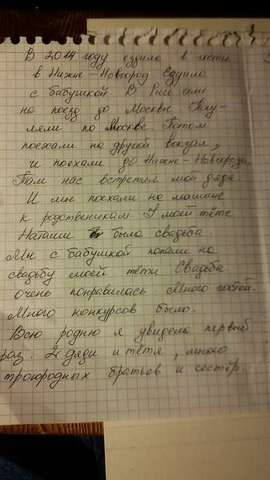 В 2014 году ездила в гости
в Нижне-Новгород Ездила
с бабушкой В Ризе сели
на поезд до Москвы Погу-
ляли по Москве Потом
поехали на другой вокзал,
и поехали до Нижне-Новгорода.
Там нас встретил мой дядя.
И мы поехали на машине
к родственникам У моей тёте
Наташи была свадьба
Мы с бабушкой попали на
свадьбу моей тётки Свадьба
очень понравилась Много гостей.
Много конкурсов было.
Всю родню я увидела первый
раз. 2 дяди и тётя, много
троюродных братьев и сестёр.